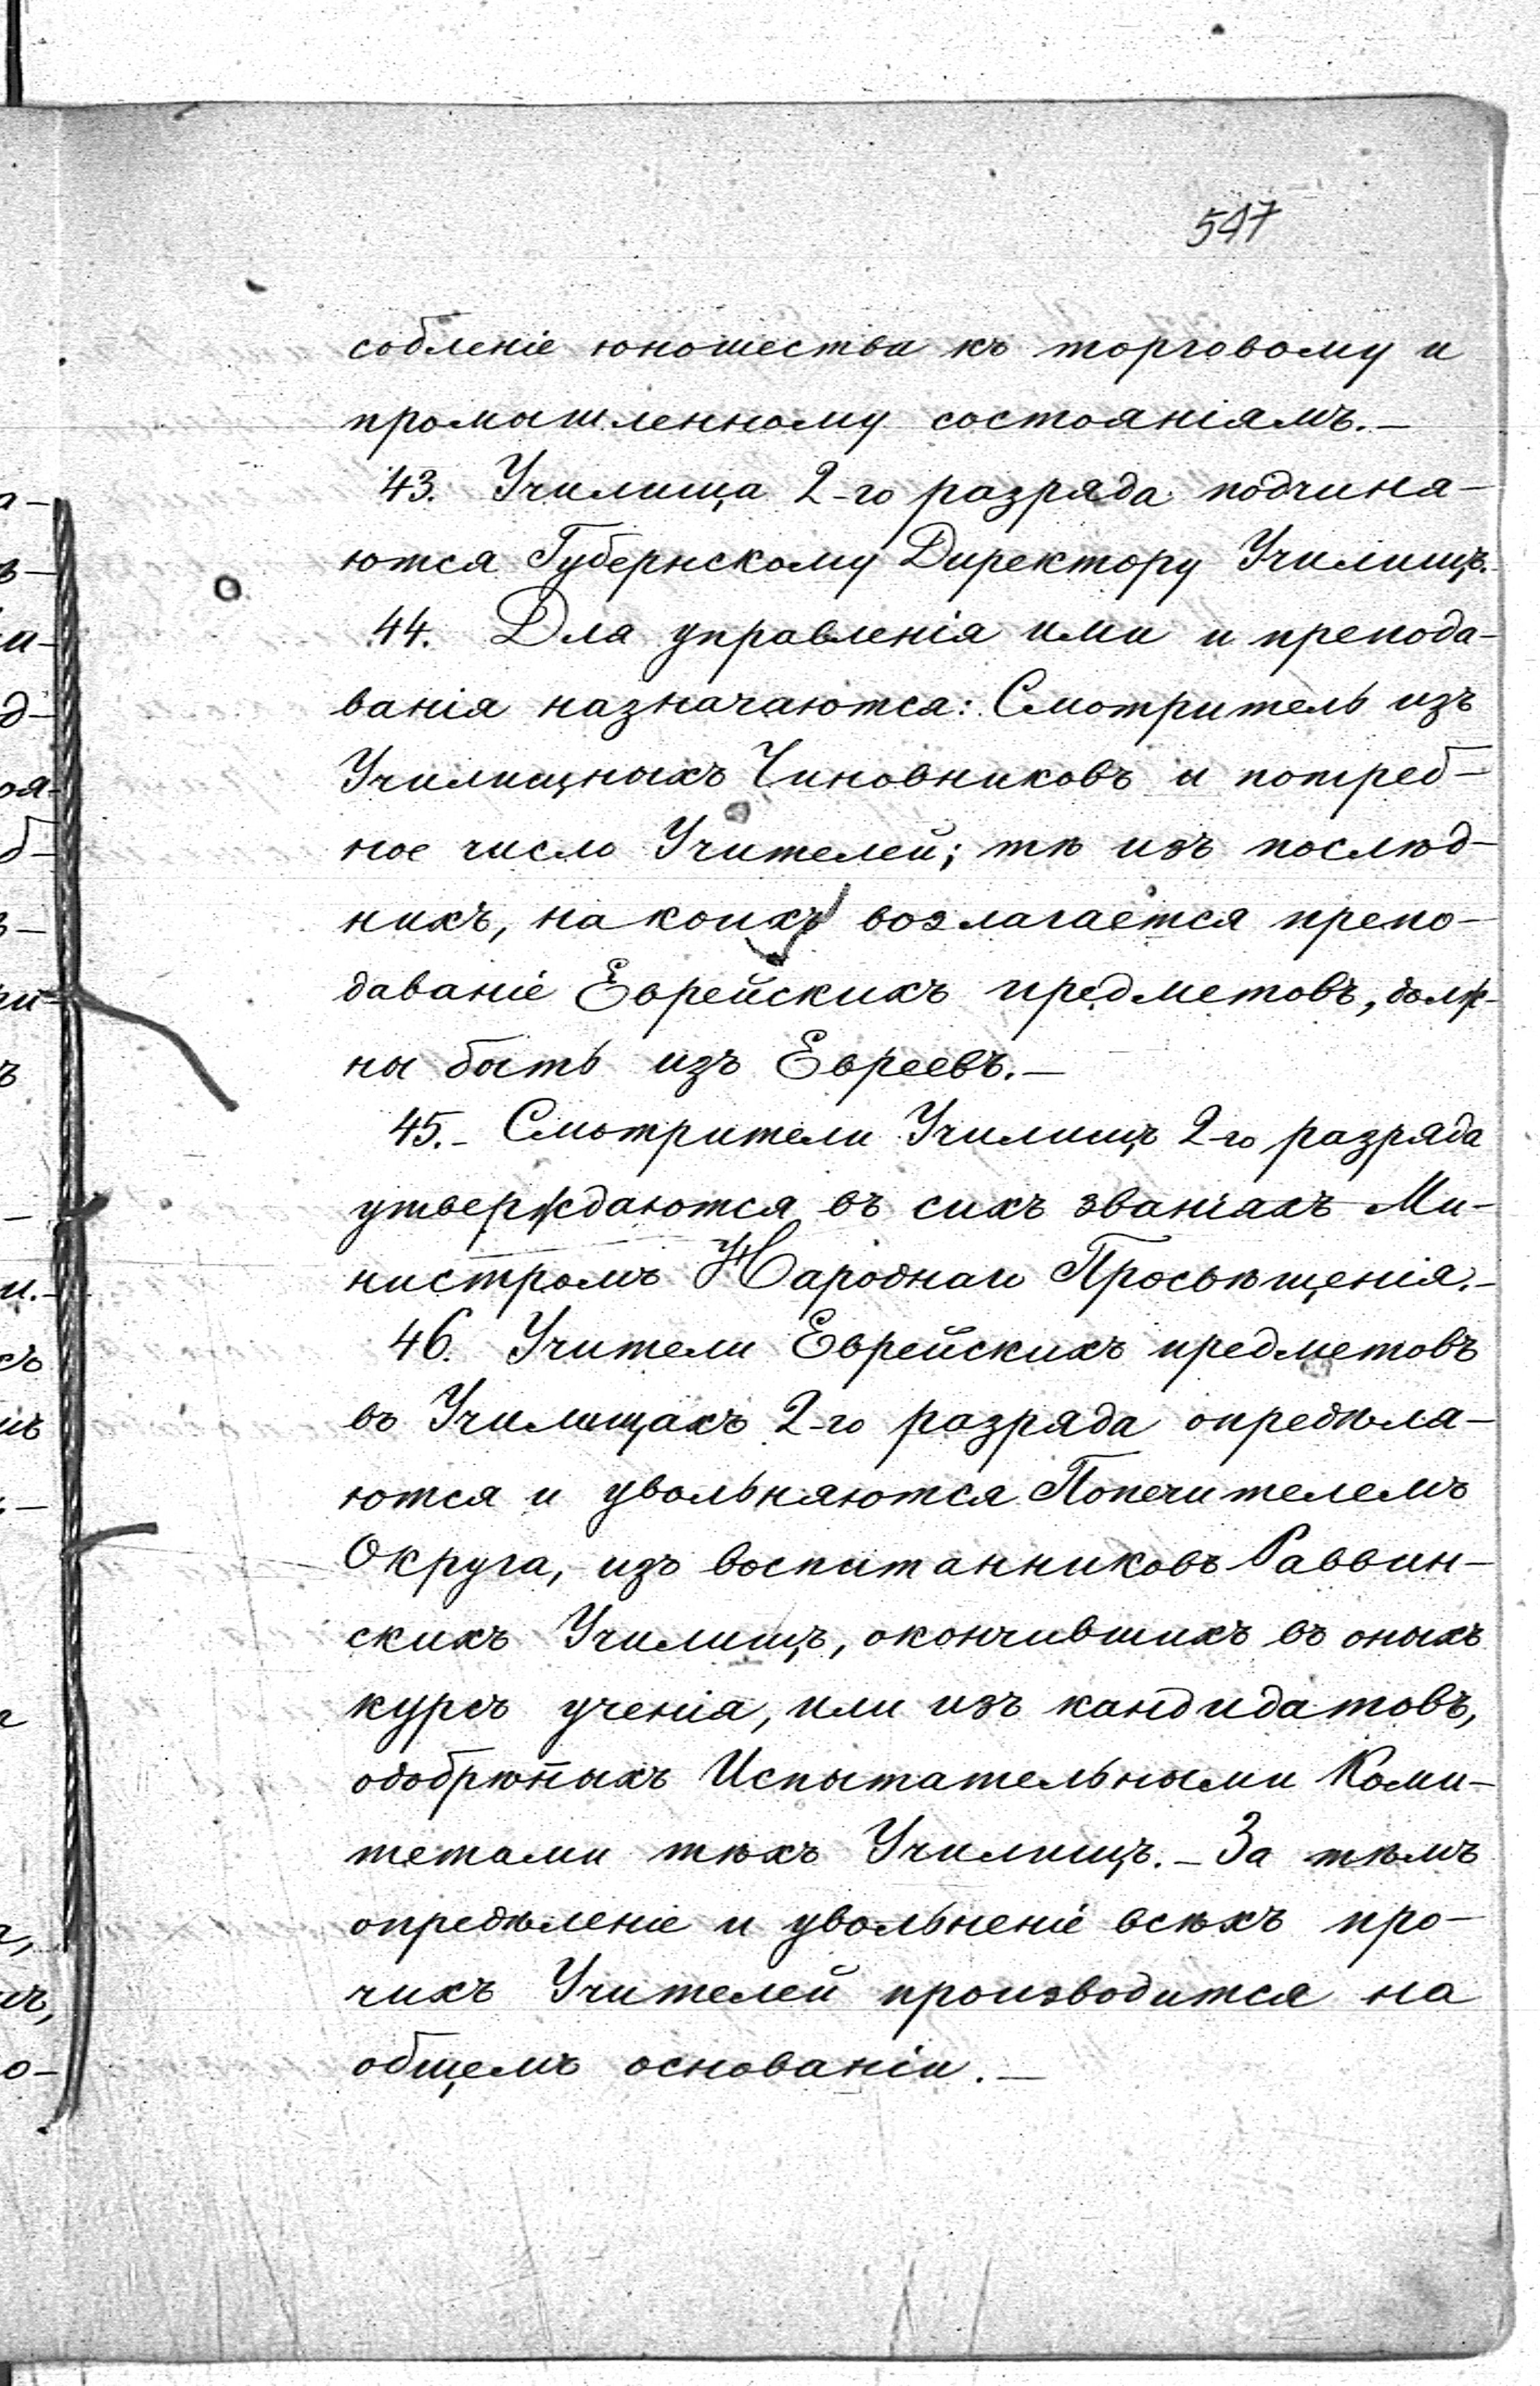 547
собленіе юношества къ торговому и
промышленному состояніямъ.—
43. Училища 2-го разряда подчиня-
ются Губернскому Директору Училищъ.
44. Для управленія ими и препода-
ванія назначаются: Смотритель изъ
Училищныхъ Чиновниковъ и потреб-
ное число Учителей; тѣ изъ послѣд-
нихъ, на коихъ возлагается препо-
даваніе Еврейскихъ предметовъ, долж-
ны быть изъ Евреевъ.—
45.- Смотрители Училищъ 2-го разряда
утверждаются въ сихъ званіяхъ Ми-
нистромъ Народнаго Просвѣщенія.-
46. Учители Еврейскихъ предметовъ
въ Училищахъ 2-го разряда опредѣля-
ются и увольняются Попечителемъ
Округа, изъ воспитанниковъ Раввин-
скихъ Училищъ, окончившихъ въ оныхъ
курсъ ученія, или изъ кандидатовъ,
одобрѣнныхъ Испытательными Коми-
тетами тѣхъ Училищъ.- За тѣмъ
опредѣленіе и увольненіе всѣхъ про-
чихъ Учителей производится на
общемъ основаніи.—